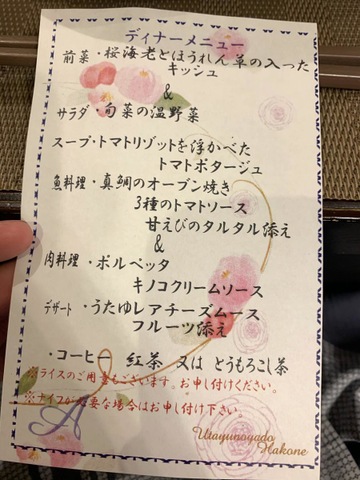 ディナーメニュー
前菜・桜海老とほうれん草の入った
キッシュ
&
サラダ・旬菜の温野菜
スープ・トマトリゾットを浮かべた
トマトポタージュ
魚料理・真鯛のオーブン焼き
3種のトマトソース
甘えびのタルタル添え
&
肉料理・ポルペッタ
キノコクリームソース
デザート・うたゆレアチーズムース
フルーツ添え
・コーヒー 紅茶 又は とうもろこし茶
※ライスのご用意もございます。お申し付けください。
※ナイフが必要な場合はお申し付け下さい。
A
Utayunoyado
Hakone